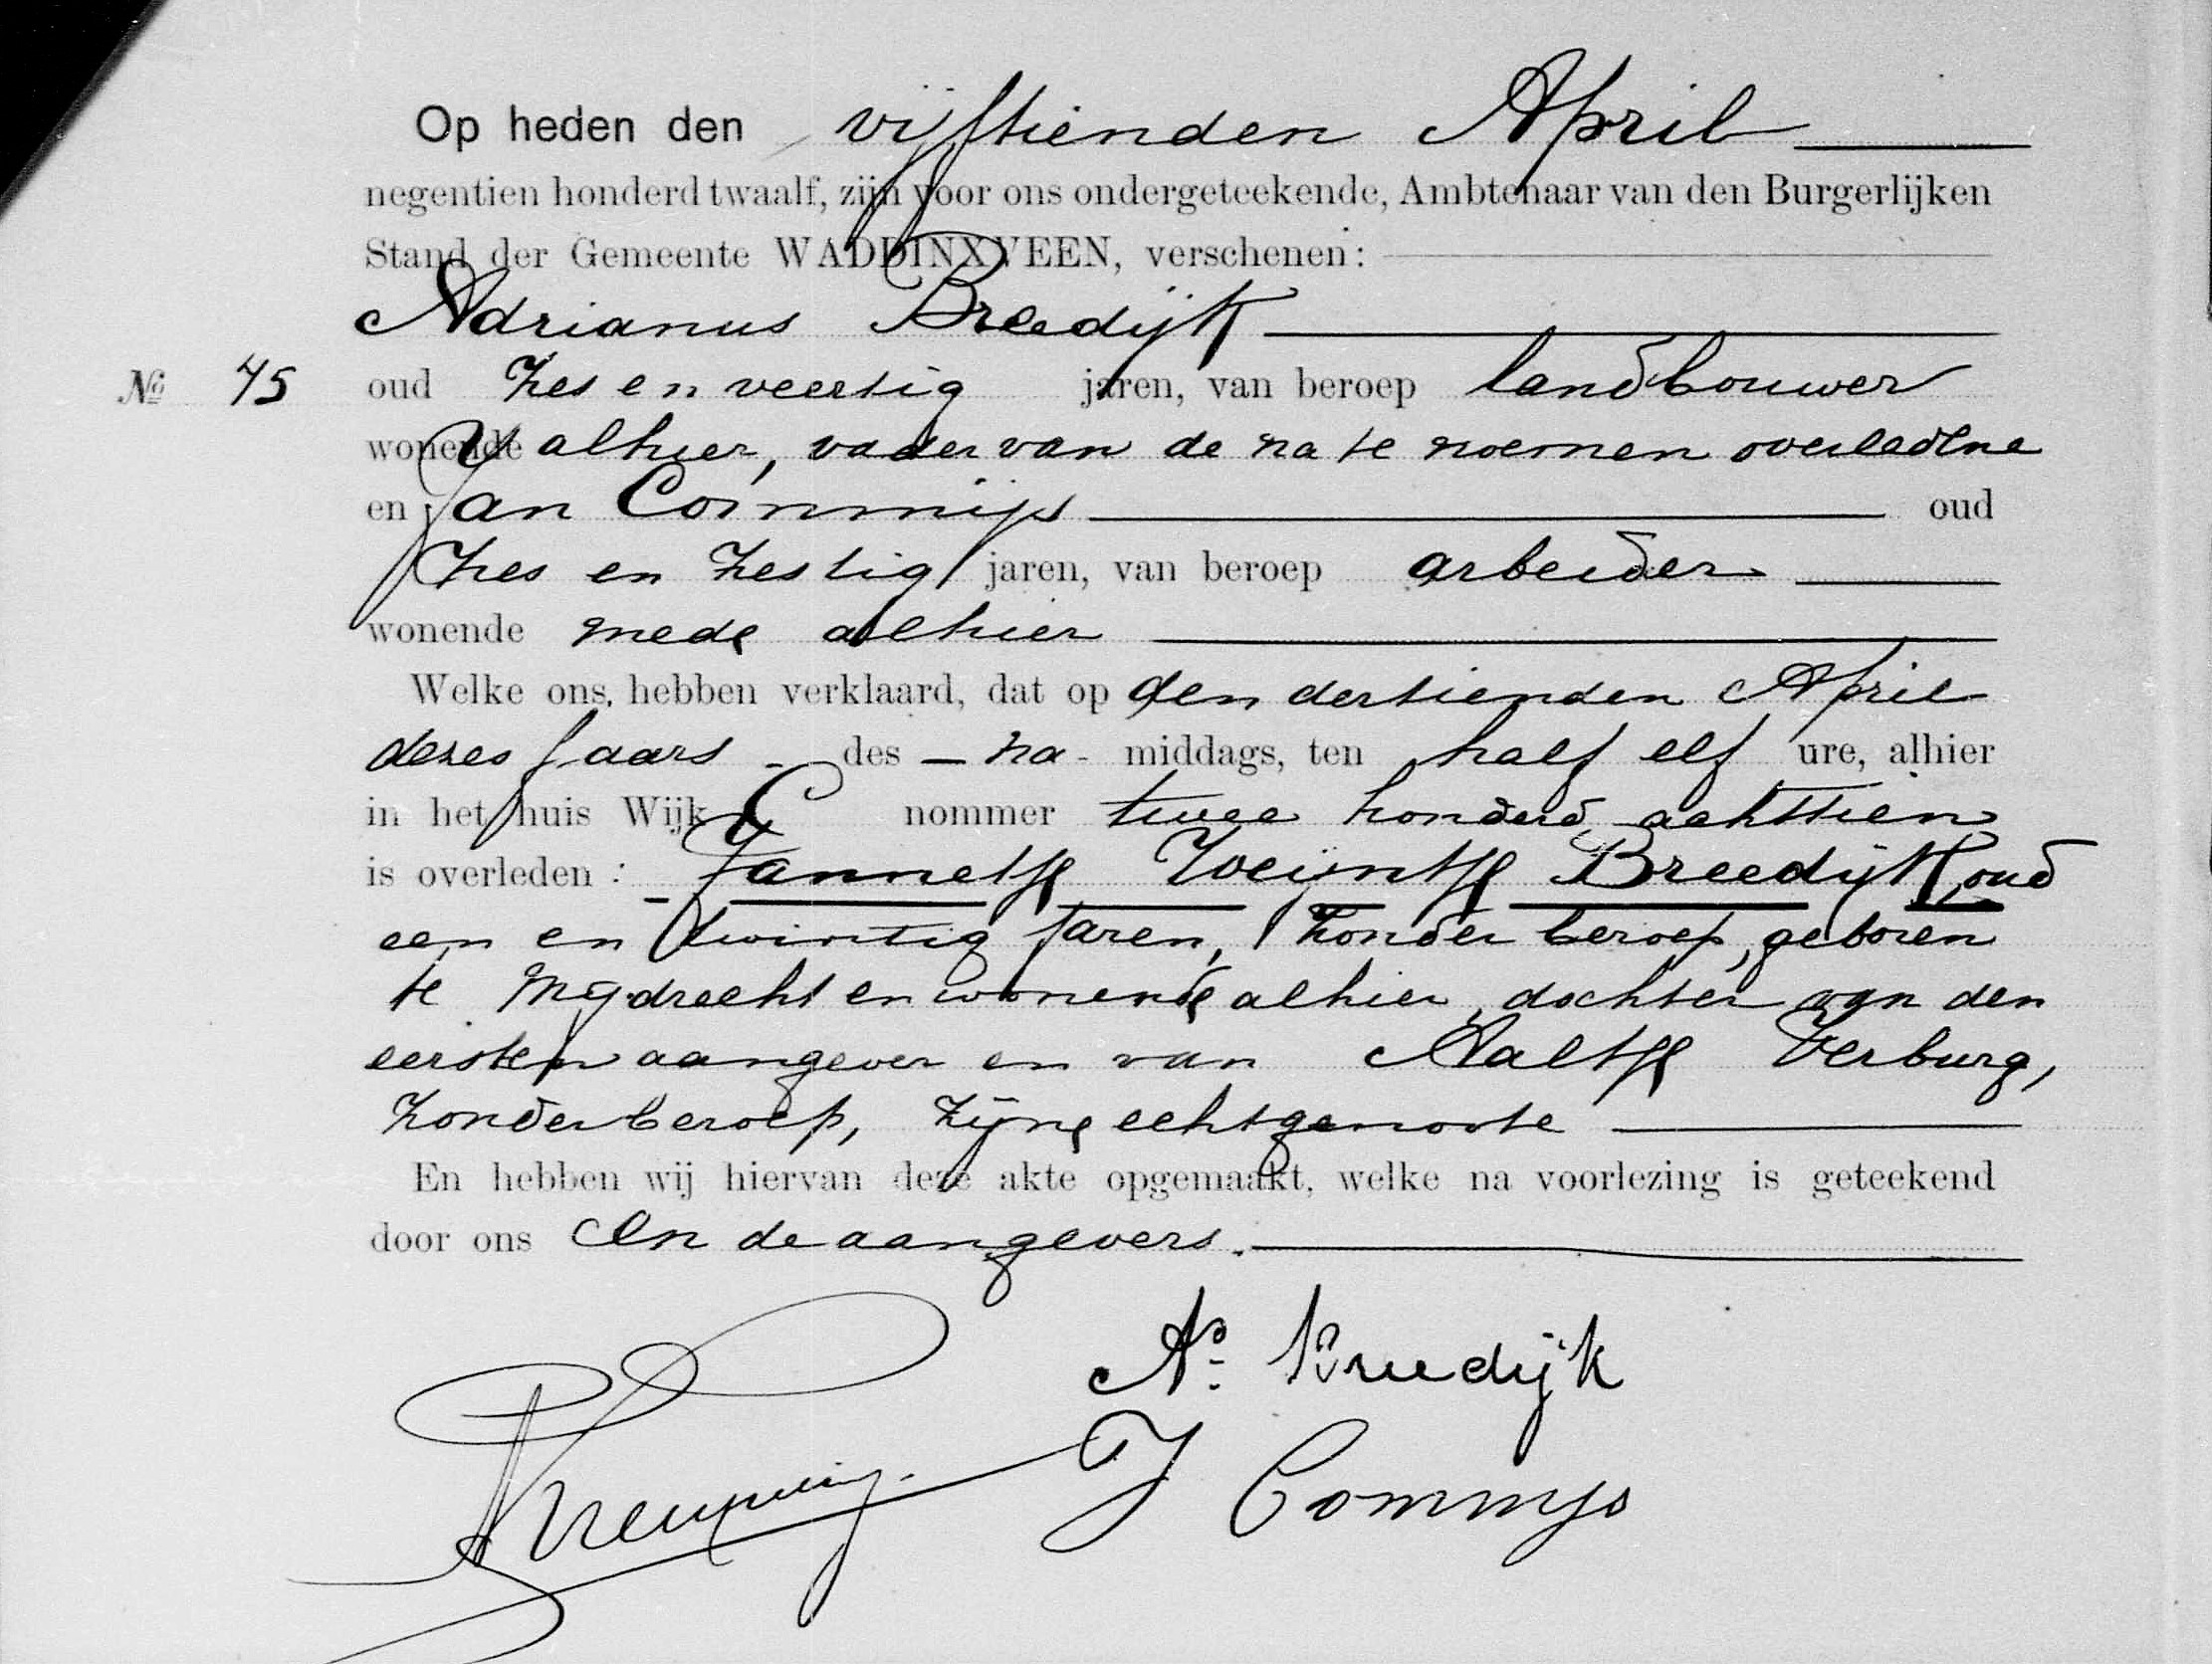 Op heden den vijftienden April
negentien honderd twaalf, zijn voor ons ondergeteekende, Ambtenaar van den Burgerlijken
Stand der Gemeente WADDINXVEEN, verschenen:
Adrianus Breedijk
No 45 oud zes en veertig jaren, van beroep landbouwer
wonende alhier, vader van de na te noemen overledene
en Jan Commijs oud
zes en zestig jaren, van beroep arbeider
wonende mede alhier
Welke ons hebben verklaard, dat op den dertienden April
dezes jaars des na middags, ten half elf ure, alhier
in het huis Wijk C nommer twee honderd achttien
is overleden: Jannetje Weijntje Breedijk, oud
een en twintig jaren, zonder beroep, geboren
te Mydrecht en wonende alhier, dochter van den
eersten aangever en van Aaltje Verburg,
zonder beroep, zijne echtgenoote
En hebben wij hiervan deze akte opgemaakt, welke na voorlezing is geteekend
door ons en de aangevers.
As. Breedijk
J Commijs